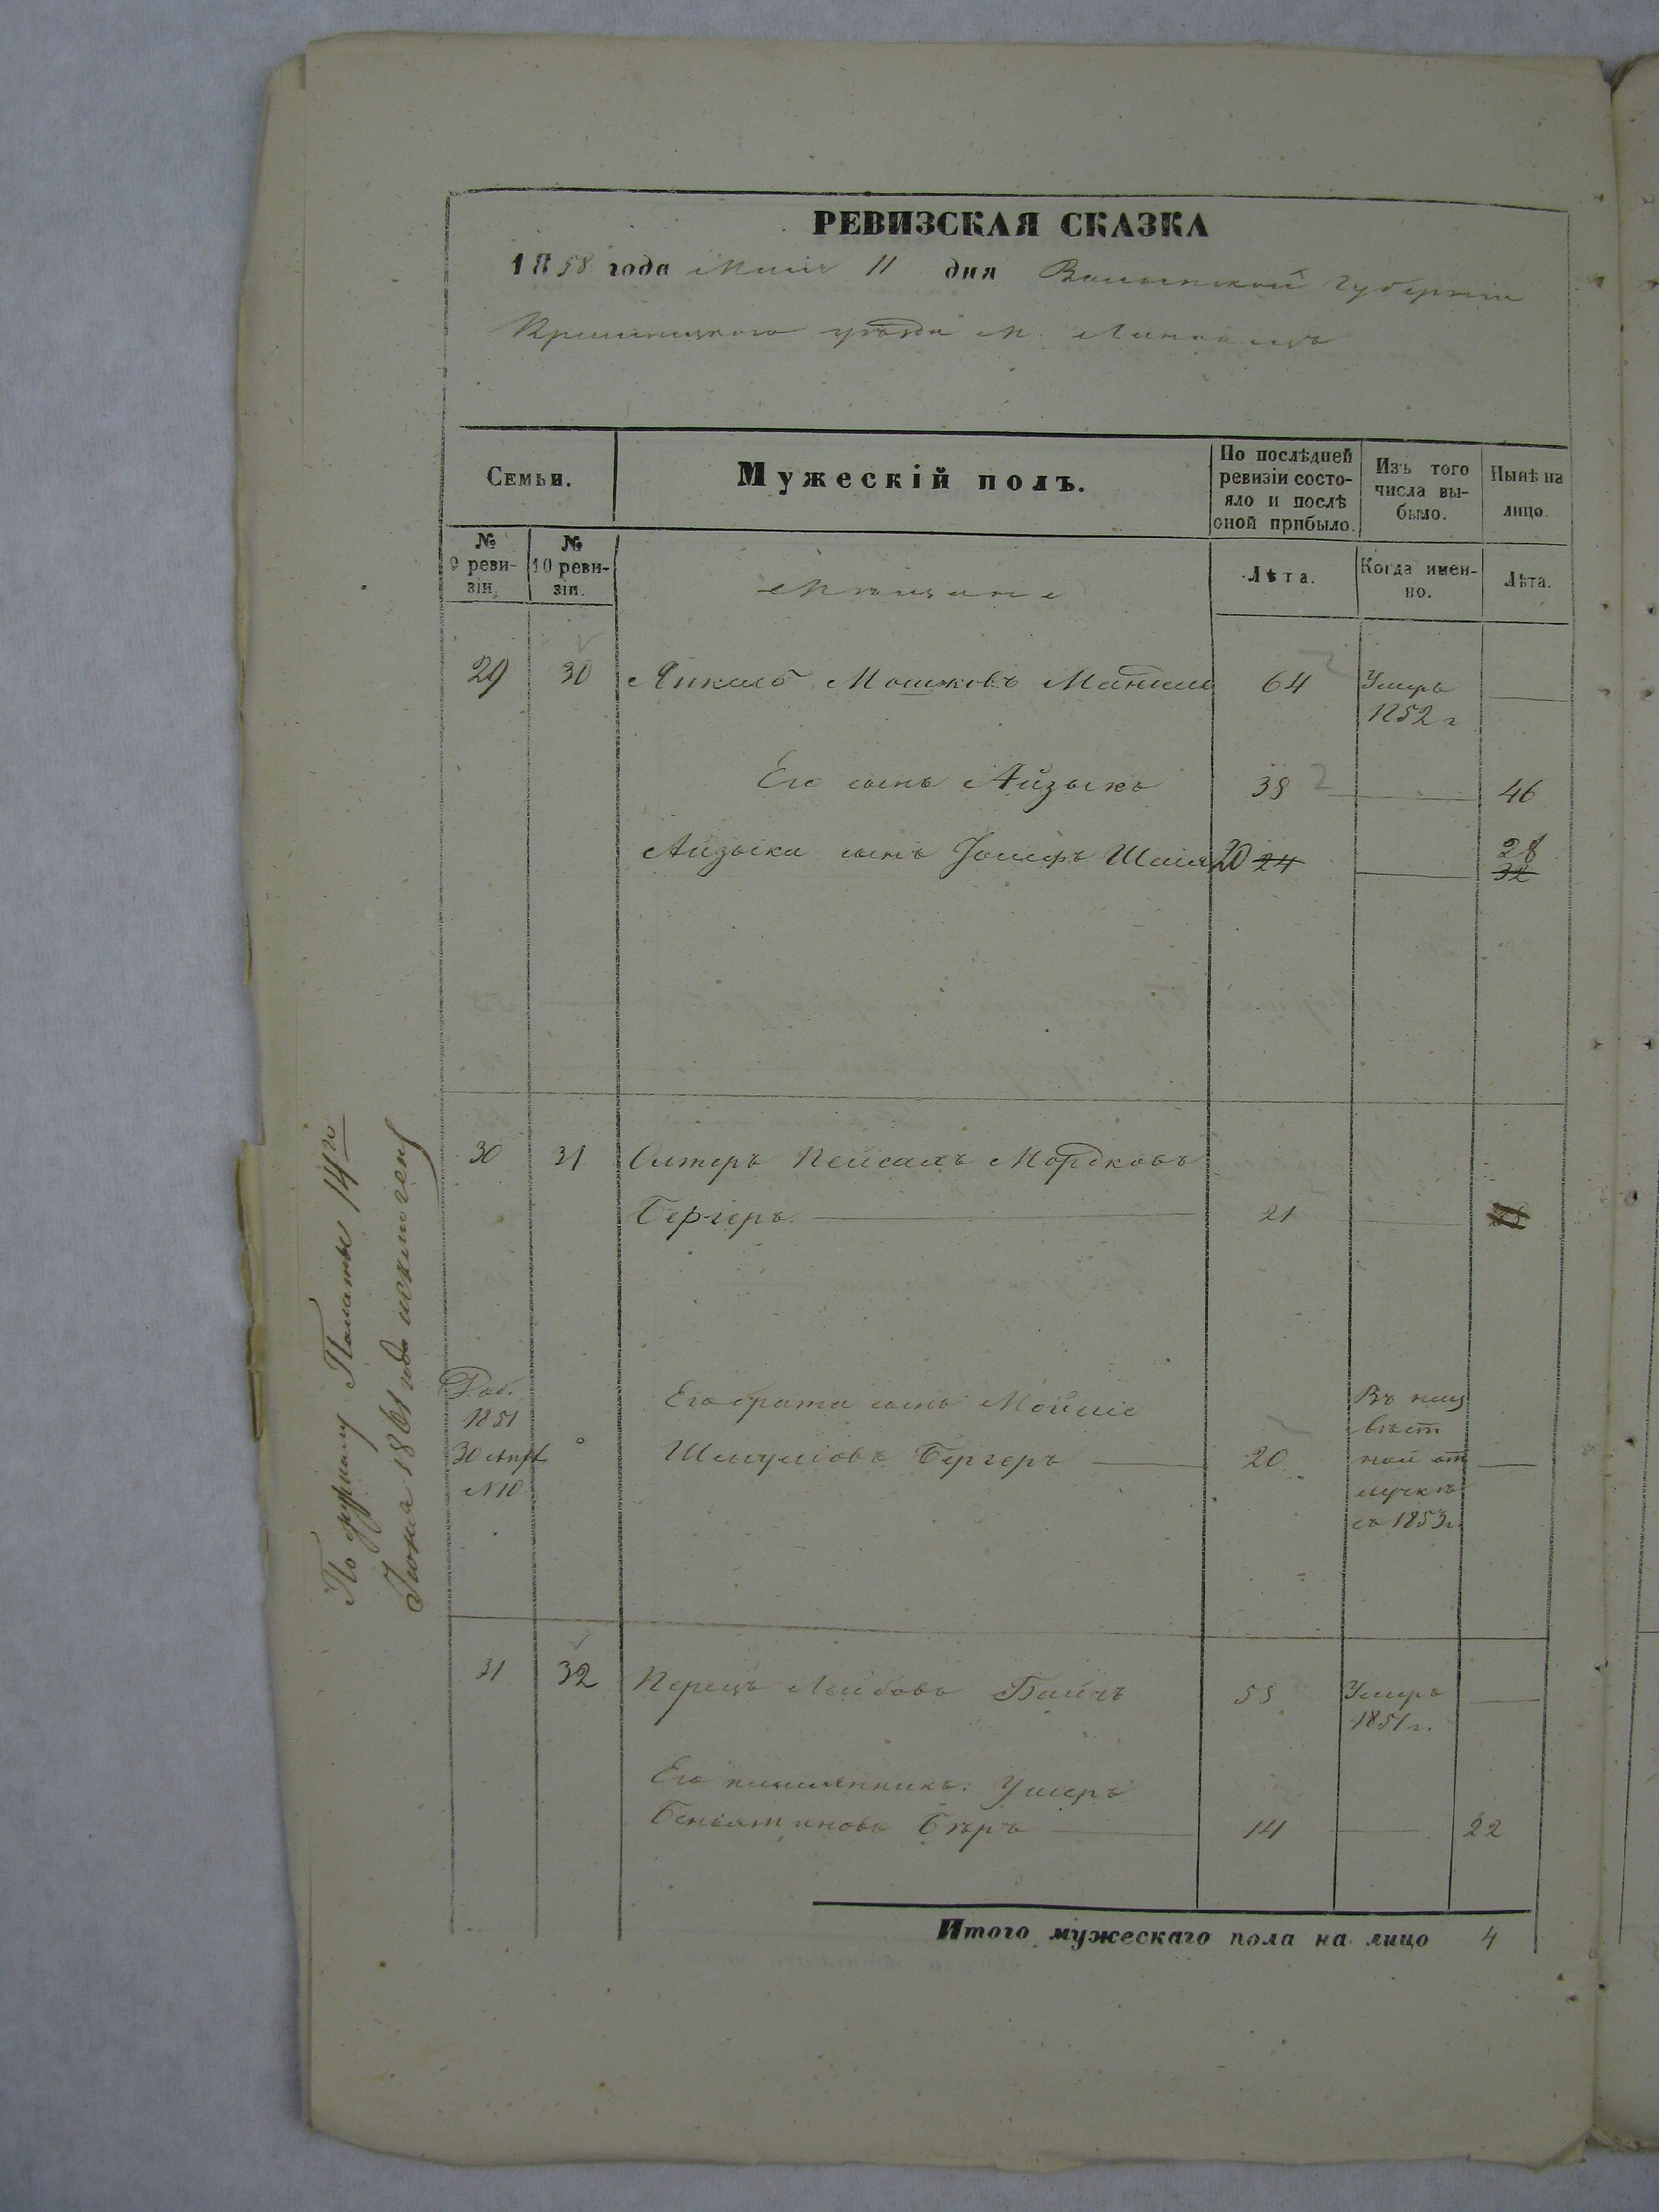 РЕВИЗСКАЯ СКАЗКА
1858 года Маія 11 дня Волынской Губерніи
Кременецкаго уѣзда м.
Семьи.
Мужескій полъ.
По послѣдней ревизіи состо-
яло и послѣ
оной прибыло.
Изъ того
числа вы-
было.
Нынѣ на
лицо.
№
9 реви-
зіи.
№
10 реви-
зіи.
Мѣщане
Лѣта.
Когда имен-
но.
Лѣта.
29 30 Янкель Мошковъ 64 Умеръ
1852 г
Его сынъ Айзыкъ 38 46
Айзыка сынъ Іосифъ 20 24 28
32
30 31 Олтеръ Пейсахъ Мордковъ
Бергеръ 21
Его брата сынъ
Шмулiовъ Бергеръ 20
Въ неиз
вѣст
ной от
лучкѣ
съ 1853 г.
1851
30
№10
31 32 Перецъ Лейбовъ 58 Умеръ
1851 г.
Его племянникъ: Ушеръ
Беньяминовъ 14 22
Итого мужескаго пола на лицо 4
По журналу Палаты 14го
Іюня 1861 года исключен